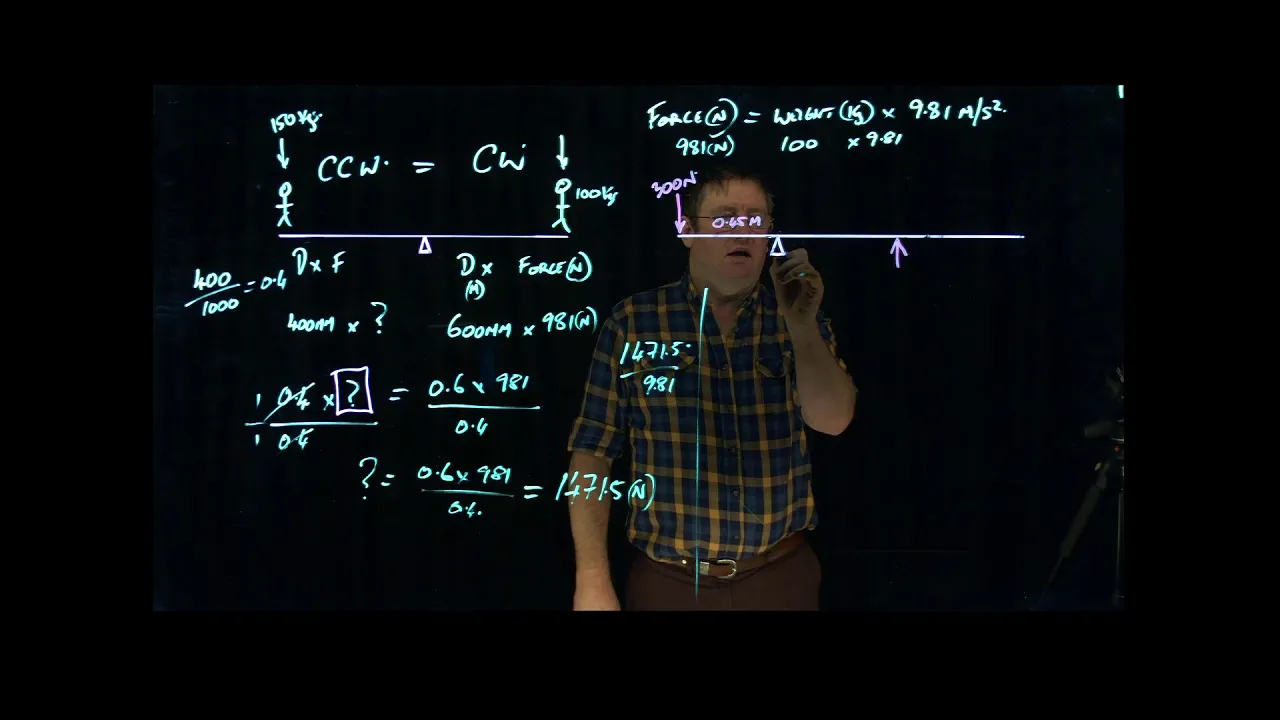 150Kg
CCW. = CW
100Kg
D x F
D x FORCE(N)
(M)
400
1000
= 0.4
400MM x ?
600MM x 981(N)
1 0.4 x ? = 0.6 x 981
1 0.4
0.4
? = 0.6 x 981 = 1471.5(N)
0.4.
FORCE(N) = WEIGHT(Kg) x 9.81 M/S².
981(N) 100 x 9.81
300N
0.45M
1471.5
9.81